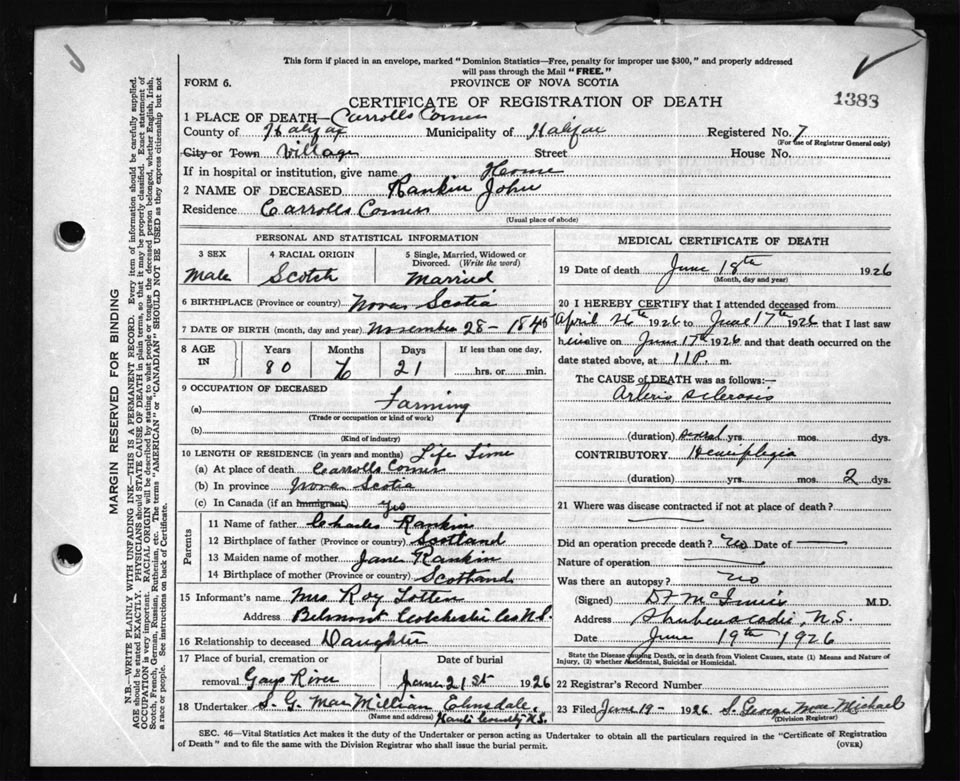 This form if placed in an envelope, marked "Dominion Statistics—Free, penalty for improper use $300," and properly addressed
will pass through the Mail "FREE."
FORM 6.
PROVINCE OF NOVA SCOTIA
CERTIFICATE OF REGISTRATION OF DEATH
1383
1 PLACE OF DEATH— Carrolls Corner
County of Halifax Municipality of Halifax Registered No. 7
(For use of Registrar General only)
City or Town Village Street House No.
If in hospital or institution, give name Home
2 NAME OF DECEASED Rankin John
Residence Carrolls Corner
(Usual place of abode)
PERSONAL AND STATISTICAL INFORMATION
3 SEX 4 RACIAL ORIGIN 5 Single, Married, Widowed or
Divorced. (Write the word)
Male Scotch Married
6 BIRTHPLACE (Province or country) Nova Scotia
7 DATE OF BIRTH (month, day and year) November 28 - 1845
8 AGE IN Years Months Days If less than one day,
80 6 21 hrs. or min.
9 OCCUPATION OF DECEASED
(a) Farming
(Trade or occupation or kind of work)
(b)
(Kind of industry)
10 LENGTH OF RESIDENCE (in years and months) Life Time
(a) At place of death Carrolls Corner
(b) In province Nova Scotia
(c) In Canada (if an immigrant) Yes
Parents
11 Name of father Charles Rankin
12 Birthplace of father (Province or country) Scotland
13 Maiden name of mother Jane Rankin
14 Birthplace of mother (Province or country) Scotland
15 Informant's name Mrs Roy Totten
Address Belmont Colchester Co N.S.
16 Relationship to deceased Daughter
17 Place of burial, cremation or Date of burial
removal Gays River June 21st 1926
18 Undertaker S. G. MacMillian Elmsdale,
(Name and address) Hants County N.S.
MEDICAL CERTIFICATE OF DEATH
19 Date of death June 18th 1926
(Month, day and year)
20 I HEREBY CERTIFY that I attended deceased from
April 26th 1926 to June 17th 1926 that I last saw
him alive on June 17th 1926 and that death occurred on the
date stated above, at 11 P. m.
The CAUSE of DEATH was as follows:—
Arterio sclerosis
(duration) several yrs. mos. dys.
CONTRIBUTORY Hemiplegia
(duration) yrs. mos. 2 dys.
21 Where was disease contracted if not at place of death?
Did an operation precede death? No Date of —
Nature of operation
Was there an autopsy? No
(Signed) D F McInnis M.D.
Address Shubenacadie, N.S.
Date June 19th 1926
State the Disease causing Death, or in death from Violent Causes, state (1) Means and Nature of
Injury, (2) whether Accidental, Suicidal or Homicidal.
22 Registrar's Record Number
23 Filed June 19 - 1926 S. George MacMichael
(Division Registrar)
SEC. 46—Vital Statistics Act makes it the duty of the Undertaker or person acting as Undertaker to obtain all the particulars required in the "Certificate of Registration
of Death" and to file the same with the Division Registrar who shall issue the burial permit.
(OVER)
MARGIN RESERVED FOR BINDING
N.B.—WRITE PLAINLY WITH UNFADING INK—THIS IS A PERMANENT RECORD. Every item of information should be carefully supplied.
AGE should be stated EXACTLY. PHYSICIANS should STATE CAUSE OF DEATH in plain terms, so that it may be properly classified. Exact statement of
OCCUPATION is very important. RACIAL ORIGIN will be described by stating to what people or tongue the deceased person belonged, whether English, Irish,
Scotch, French, German, Russian, Ruthenian, etc. The terms "AMERICAN" or "CANADIAN" SHOULD NOT BE USED as they express citizenship but not
a race or people. See instructions on back of Certificate.